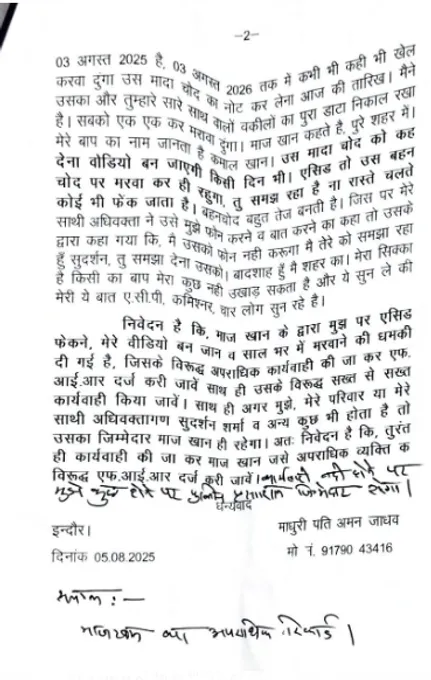 –2–
03 अगस्त 2025 है, 03 अगस्त 2026 तक में कभी भी कही भी खेल
करवा दुंगा उस मादा चोद का नोट कर लेना आज की तारिख। मैने
उसका और तुम्हारे सारे साथ वालों वकीलों का पुरा डाटा निकाल रखा
है। सबको एक एक कर मरवा दुंगा। माज खान कहते है, पुरे शहर में।
मेरे बाप का नाम जानता है कमाल खान। उस मादा चोद को कह
देना वोडियो बन जाएगी किसी दिन भी। एसिड तो उस बहन
चोद पर मरवा कर ही रहुगा, तु समझ रहा है ना रास्ते चलते
कोई भी फेंक जाता है। बहनचोद बहुत तेज बनती है। जिस पर मेरे
साथी अधिवक्ता ने उसे मुझे फोन करने व बात करने का कहा तो उसके
द्वारा कहा गया कि, मै उसको फोन नही करूगा मै तेरे को समझा रहा
हुँ सुदर्शन, तु समझा देना उसको। बादशाह हुँ मै शहर का। मेरा सिक्का
है किसी का बाप मेरा कुछ नही उखाड़ सकता है और ये सुन ले की
मेरी ये बात ए.सी.पी, कमिश्नर, चार लोग सुन रहे है।
निवेदन है कि, माज खान के द्वारा मुझ पर एसिड
फेकने, मेरे वीडियो बन जान व साल भर में मरवाने की धमकी
दी गई है, जिसके विरूद्ध अपराधिक कार्यवाही की जा कर एफ.
आई.आर दर्ज करी जावें साथ ही उसके विरूद्ध सख्त से सख्त
कार्यवाही किया जावें। साथ ही अगर मुझे, मेरे परिवार या मेरे
साथी अधिवक्तागण सुदर्शन शर्मा व अन्य कुछ भी होता है तो
उसका जिम्मेदार माज खान ही रहेगा। अतः निवेदन है कि, तुरंत
ही कार्यवाही की जा कर माज खान जसे अपराधिक व्यक्ति क
विरूद्ध एफ.आई.आर दर्ज करी जावें। कार्यवाही नही होने पर
मुझे कुछ होने पर पुलिस प्रशासन जिम्मेदार रहेगा।
धन्यवाद
इन्दौर।
माधुरी पति अमन जाधव
दिनांक 05.08.2025
मो नं. 91790 43416
संलग्न :—
माज खान का अपराधिक रिकार्ड।